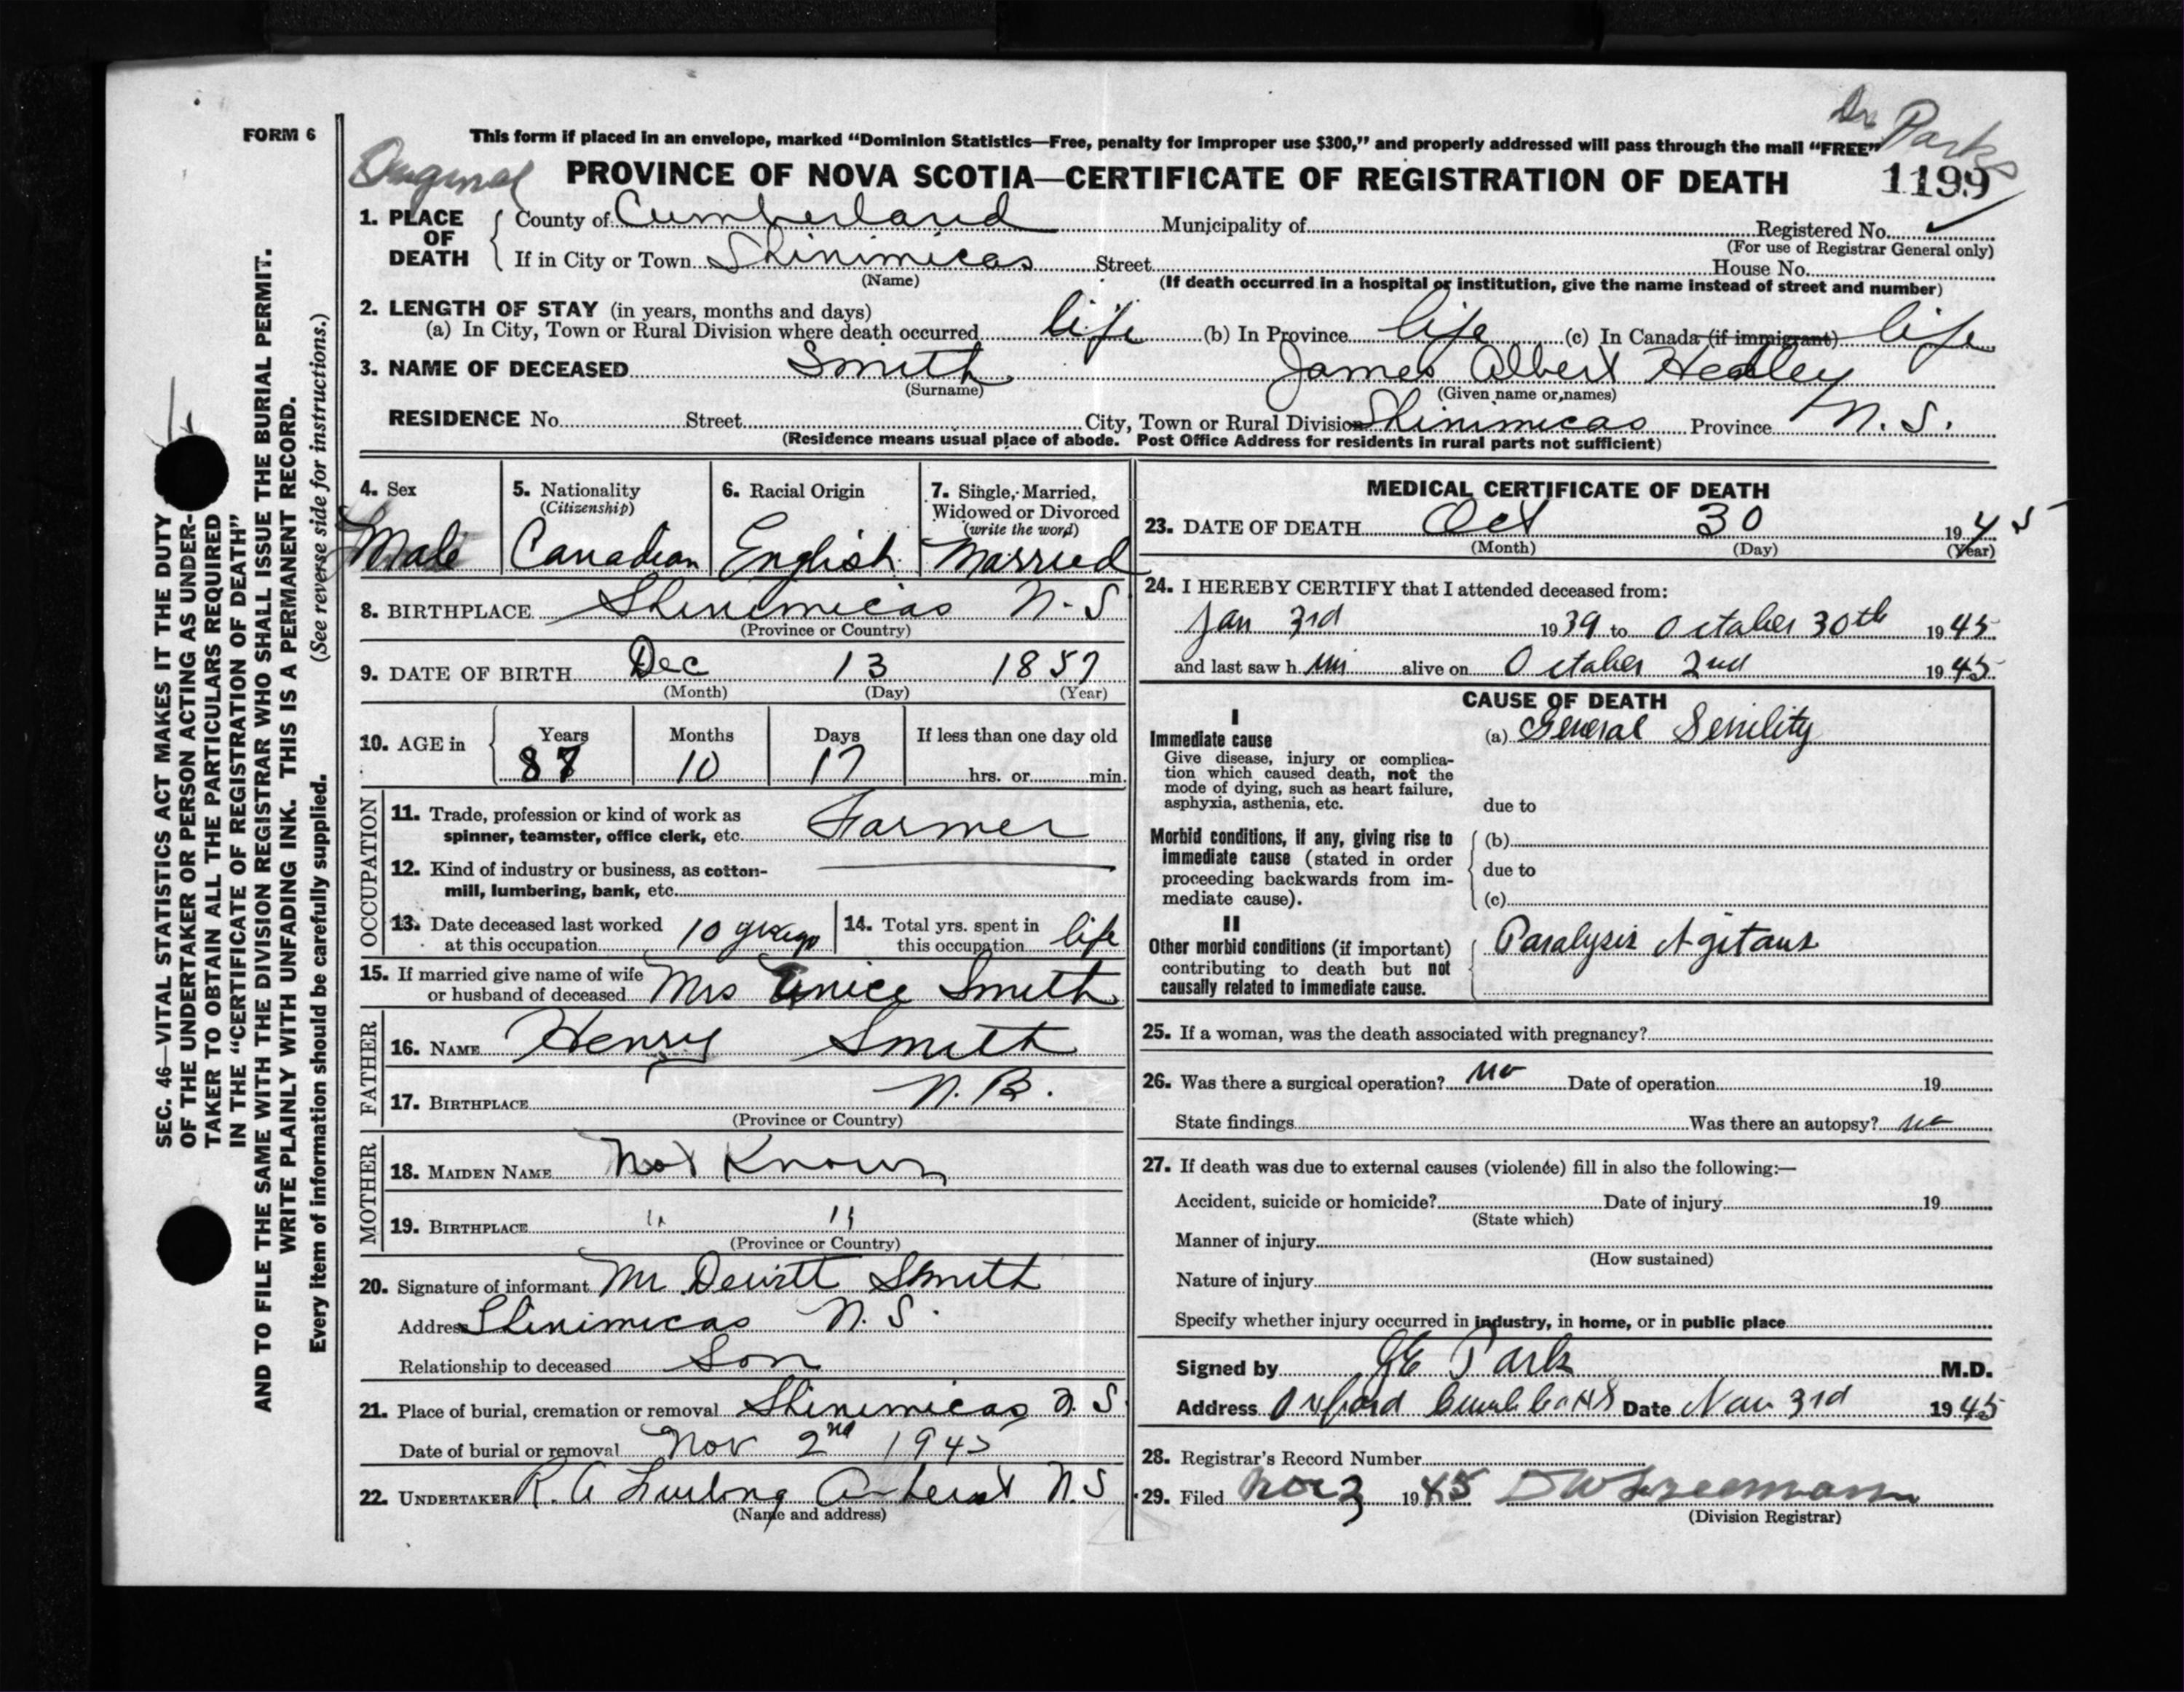 Dr Parks
FORM 6
This form if placed in an envelope, marked “Dominion Statistics—Free, penalty for improper use $300,” and properly addressed will pass through the mail “FREE”
Original
PROVINCE OF NOVA SCOTIA—CERTIFICATE OF REGISTRATION OF DEATH 1199
1. PLACE OF DEATH County of Cumberland Municipality of Registered No.
(For use of Registrar General only)
If in City or Town Shinimicas Street House No.
(Name) (If death occurred in a hospital or institution, give the name instead of street and number)
2. LENGTH OF STAY (in years, months and days)
(a) In City, Town or Rural Division where death occurred life (b) In Province life (c) In Canada (if immigrant) life
3. NAME OF DECEASED Smith James Albert Hedley
(Surname) (Given name or names)
RESIDENCE No. Street City, Town or Rural Division Shinimicas Province N. S.
(Residence means usual place of abode. Post Office Address for residents in rural parts not sufficient)
4. Sex 5. Nationality 6. Racial Origin 7. Single, Married, Widowed or Divorced
(Citizenship) (write the word)
Male Canadian English Married
8. BIRTHPLACE Shinimicas N. S
(Province or Country)
9. DATE OF BIRTH Dec 13 1857
(Month) (Day) (Year)
10. AGE in Years Months Days If less than one day old
87 10 17 hrs. or min.
OCCUPATION
11. Trade, profession or kind of work as
spinner, teamster, office clerk, etc. Farmer
12. Kind of industry or business, as cotton-
mill, lumbering, bank, etc.
13. Date deceased last worked
at this occupation 10 yrs ago
14. Total yrs. spent in
this occupation life
15. If married give name of wife
or husband of deceased Mrs Unice Smith
FATHER
16. NAME Henry Smith
17. BIRTHPLACE N. B.
(Province or Country)
MOTHER
18. MAIDEN NAME Not Known
19. BIRTHPLACE " "
(Province or Country)
20. Signature of informant Mr Dewitt Smith
Address Shinimicas N. S.
Relationship to deceased Son
21. Place of burial, cremation or removal Shinimicas N. S.
Date of burial or removal Nov 2nd 1945
22. UNDERTAKER R. A Amherst N. S
(Name and address)
MEDICAL CERTIFICATE OF DEATH
23. DATE OF DEATH Oct 30 1945
(Month) (Day) (Year)
24. I HEREBY CERTIFY that I attended deceased from:
Jan 3rd 1939 to October 30th 1945
and last saw him alive on October 2nd 1945
CAUSE OF DEATH
I
Immediate cause (a) General Senility
Give disease, injury or complica-
tion which caused death, not the
mode of dying, such as heart failure,
asphyxia, asthenia, etc. due to
Morbid conditions, if any, giving rise to (b)
immediate cause (stated in order
proceeding backwards from im- due to
mediate cause). (c)
II
Other morbid conditions (if important) Paralysis Agitans
contributing to death but not
causally related to immediate cause.
25. If a woman, was the death associated with pregnancy?
26. Was there a surgical operation? no Date of operation 19
State findings Was there an autopsy? no
27. If death was due to external causes (violence) fill in also the following:—
Accident, suicide or homicide? Date of injury 19
(State which)
Manner of injury
(How sustained)
Nature of injury
Specify whether injury occurred in industry, in home, or in public place
Signed by GE Park M.D.
Address Oxford Date Nov 3rd 1945
28. Registrar's Record Number
29. Filed Nov 3 1945
(Division Registrar)
SEC. 46—VITAL STATISTICS ACT MAKES IT THE DUTY
OF THE UNDERTAKER OR PERSON ACTING AS UNDER-
TAKER TO OBTAIN ALL THE PARTICULARS REQUIRED
IN THE “CERTIFICATE OF REGISTRATION OF DEATH”
AND TO FILE THE SAME WITH THE DIVISION REGISTRAR WHO SHALL ISSUE THE BURIAL PERMIT.
WRITE PLAINLY WITH UNFADING INK. THIS IS A PERMANENT RECORD.
Every item of information should be carefully supplied. (See reverse side for instructions.)